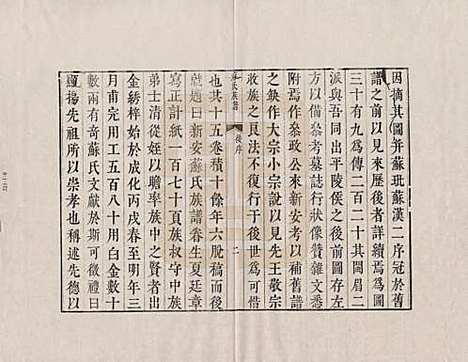 因摘其圖并蘇玭蘇漢二序冠於舊
譜之前以見來歷後者詳續焉為圖
三十有九為傳二百二十其閩眉二
派與吾同出平陵侯之後前圖存左
方以叅考墓誌行狀像贊雜文悉
附焉作叅政公來新安考以補舊譜
之缺作大宗小宗說以見先王敬宗
收族之良法不復行于後世為可惜
蘇氏族譜 卷序 二
也其十五卷積十餘年六脫稿而
尅題曰新安蘇氏族譜春生夏廷章
寫正計紙一百二十頁族叔守中族
弟士清從姪以瞻率族之中賢者出
金綉梓始於成化丙戌春至明年三
月甫完用工五百八十用白金數十
兩有奇蘇氏文獻於斯可徵禮曰
顯揚先祖所以崇孝也茲先德以